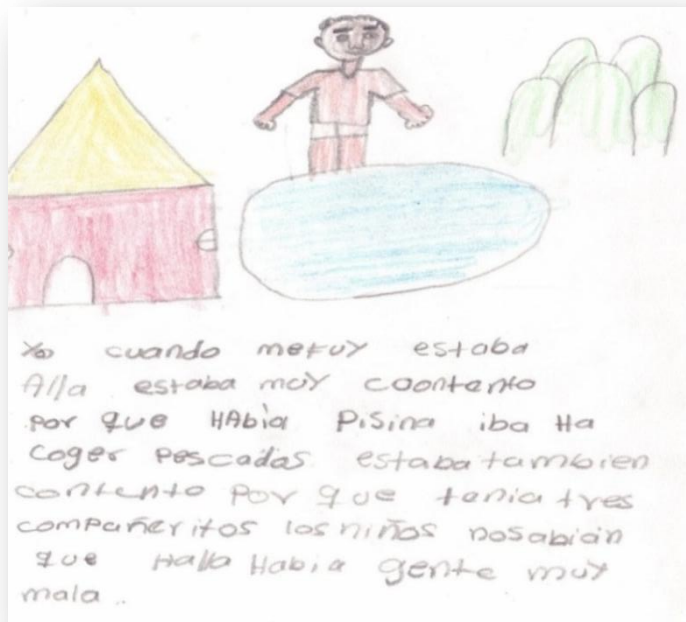 Yo cuando mefuy estaba
Alla estaba muy coontento
por que HAbia Pisina iba Ha
coger pescadas estaba tambien
contento por que tenia tres
compañeritos los niños nosabian
que Halla Habia gente muy
mala.